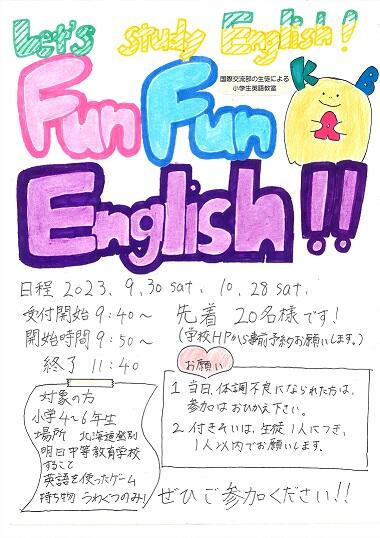 Let's study English!
国際交流部の生徒による
小学生英語教室
Fun Fun
K B
English!!
日程 2023. 9.30 sat. 10.28 sat.
受付開始 9:40〜 先着 20名様です!
開始時間 9:50〜 (学校HPから事前予約お願いします。)
終了 11:40
お願い
1 当日、体調不良になられた方は、
参加はおひかえ下さい。
2 付きそいは、生徒1人につき、
1人以内でお願いします。
対象の方
小学4〜6年生
場所 北海道登別
明日中等教育学校
すること
英語を使ったゲーム
持ち物 うわぐつのみ!
ぜひご参加ください!!